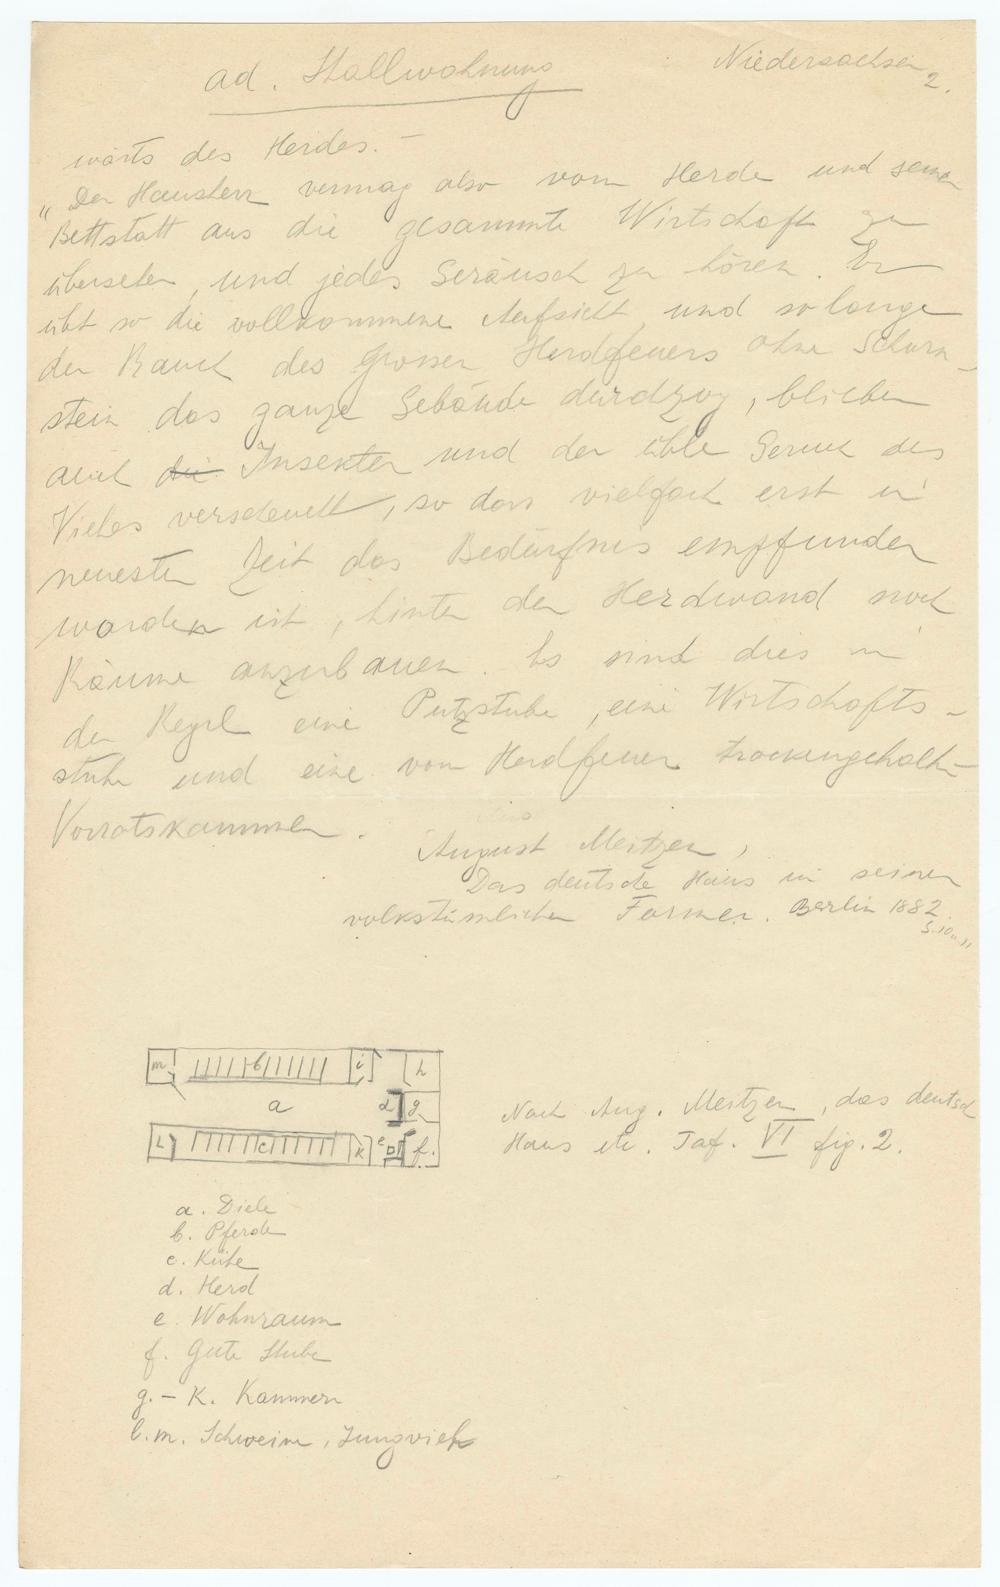 ad. Stallwohnung
Niedersachsen
2.
wärts des Herdes. –
"Der Hausherr vermag also vom Herde und seiner
Bettstatt aus die gesammte Wirtschaft zu
übersehen, und jedes Geräusch zu hören. Er
übt so die vollkommene Aufsicht, und so lange
der Rauch des grossen Herdfeuers ohne Schorn-
stein das ganze Gebäude durchzog, blieben
auch die Insekten und der üble Geruch des
Viehes verscheucht, so dass vielfach erst in
neuester Zeit das Bedürfnis empfunden
worden ist, hinter der Herdwand noch
Räume anzubauen. Es sind dies in
der Regel eine Putzstube, eine Wirtschafts-
stube und eine vom Herdfeuer trockengehalte
Vorratskammer.
August Meitzen,
Das deutsche Haus in seinen
volkstümlichen Formen. Berlin 1882.
S. 10 u. 11
m b i h
a d g
L c k e f.
Nach Aug. Meitzen, das deutsch
Haus etc. Taf. VI fig. 2.
a. Diele
b. Pferde
c. Kühe
d. Herd
e. Wohnraum
f. Gute Stube
g. – K. Kammern
l. m. Schweine, Jungvieh